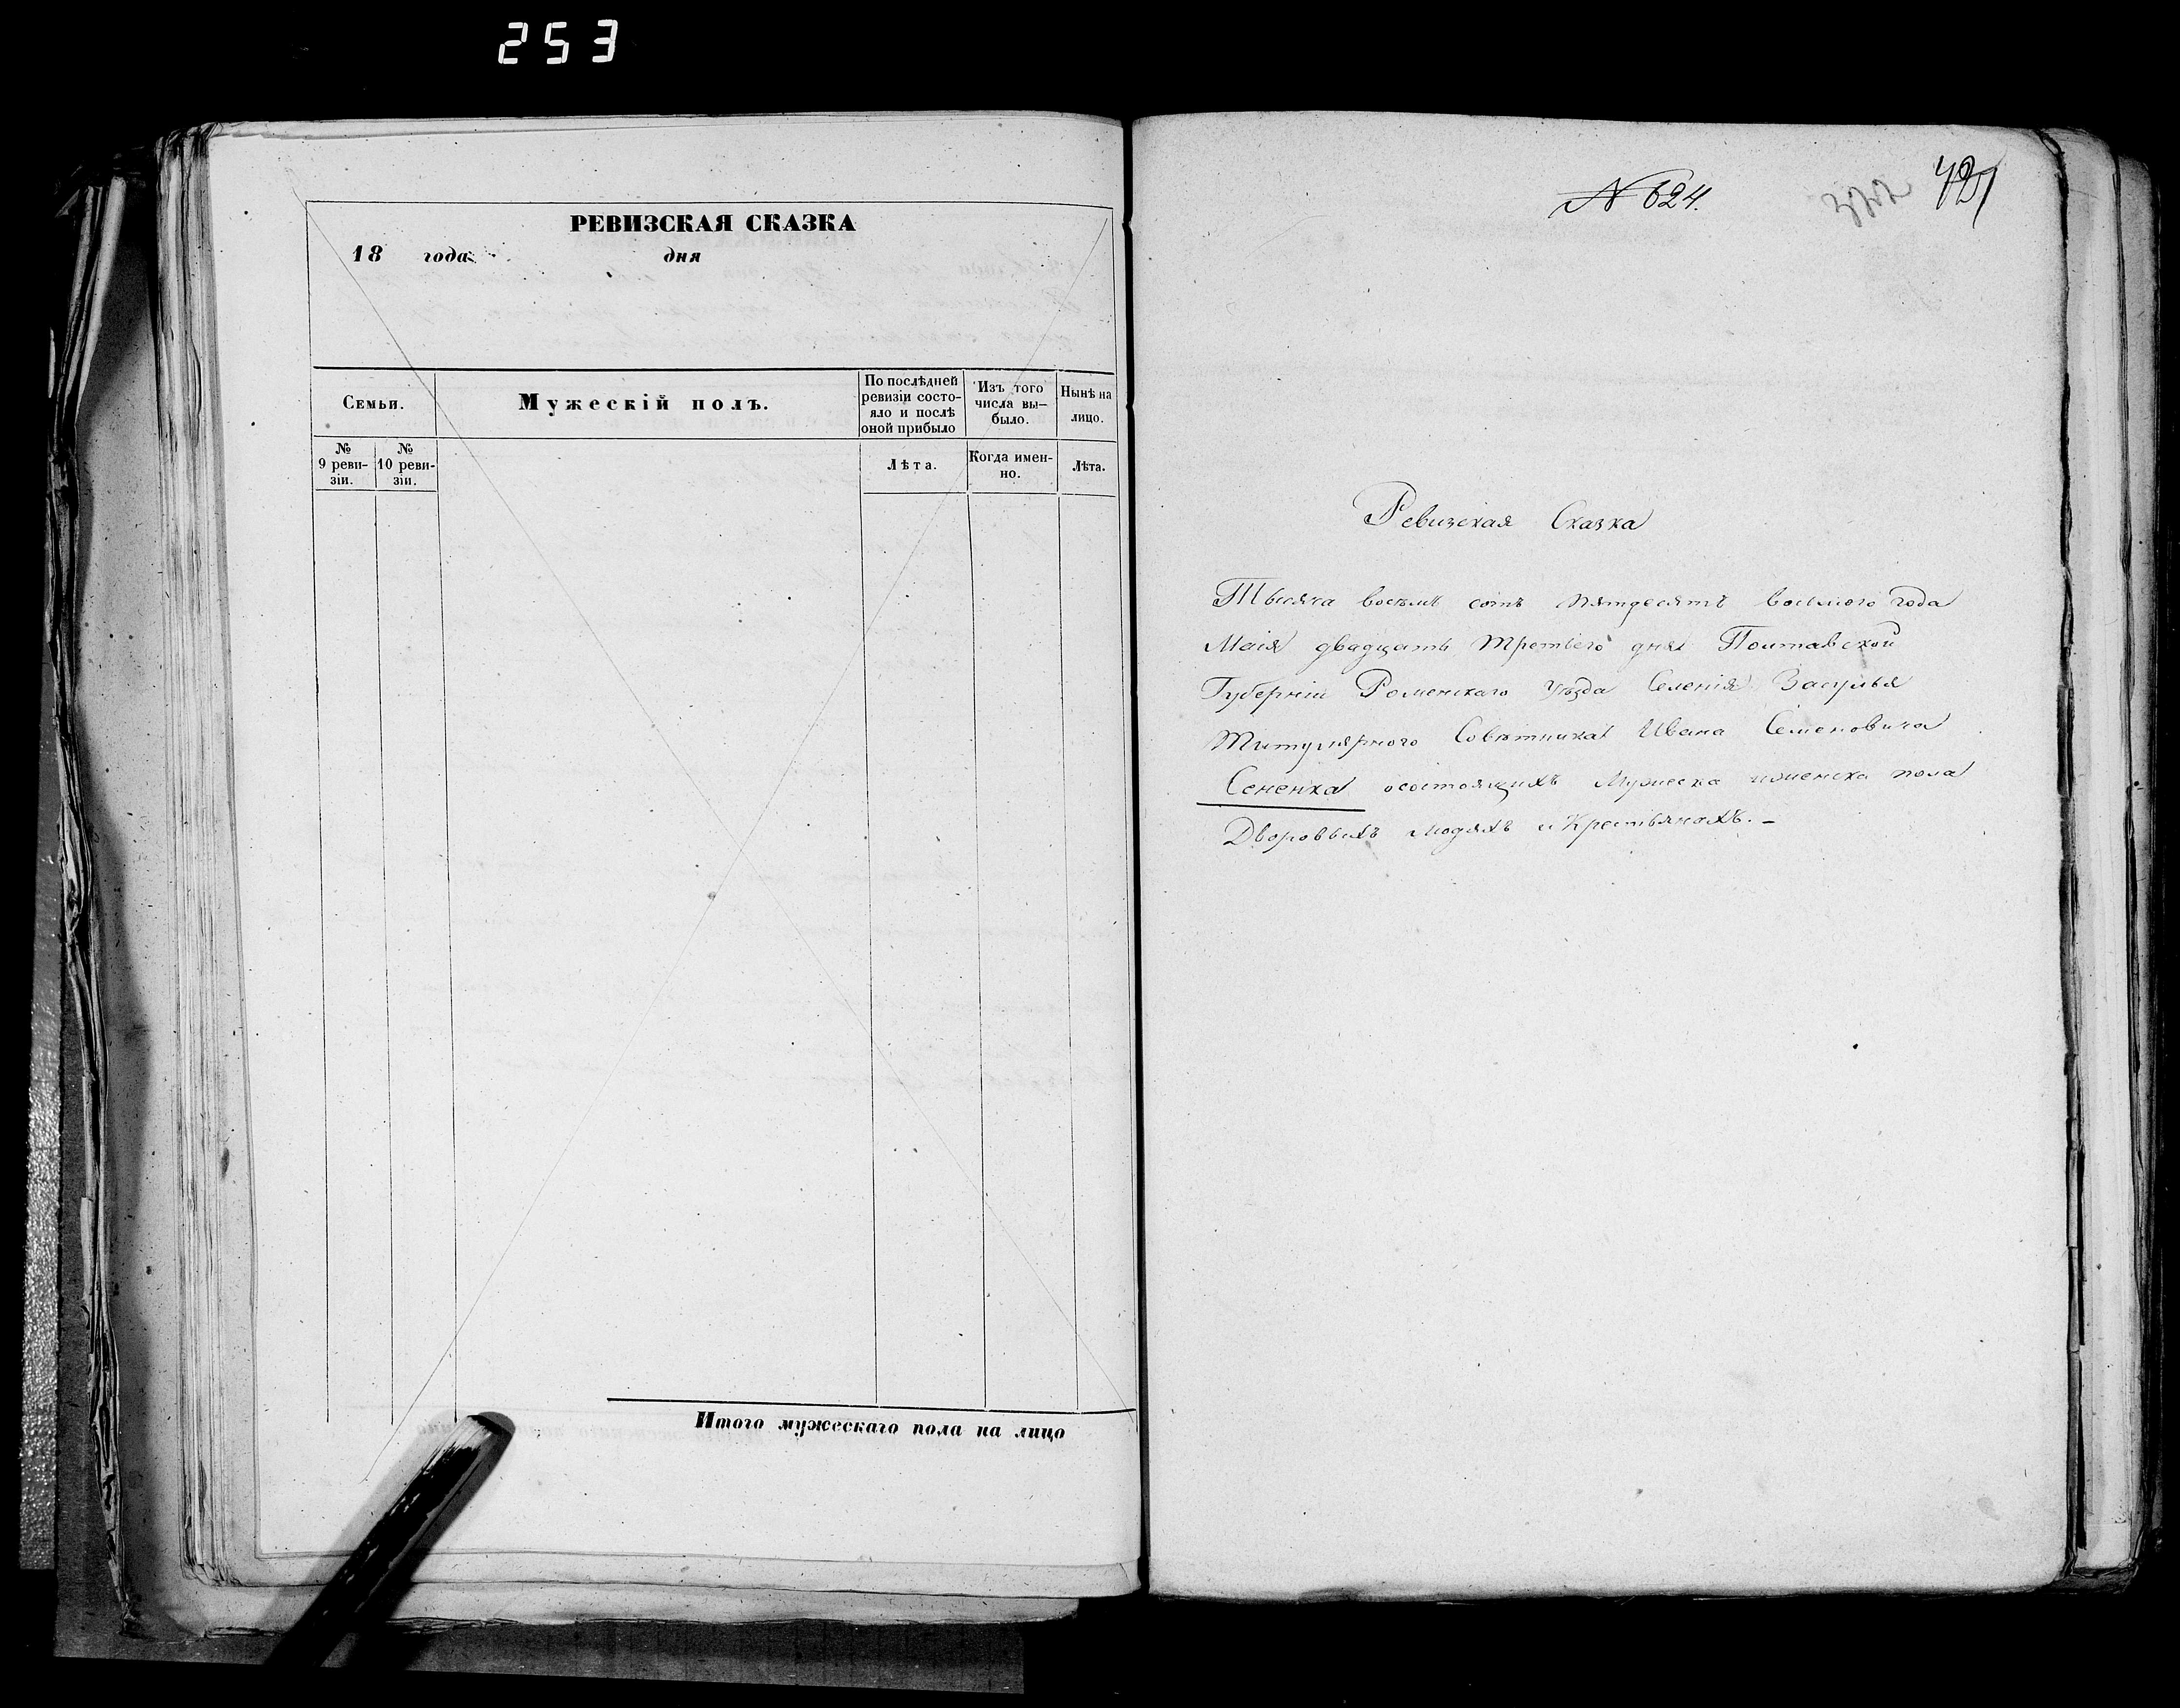 253
РЕВИЗСКАЯ СКАЗКА
18 года дня
Семьи.
Мужескій полъ.
По послѣдней
ревизіи состо-
яло и послѣ
оной прибыло
Изъ того
числа вы-
было.
Нынѣ на
лицо.
№
9 реви-
зіи.
№
10 реви-
зіи.
Лѣта.
Когда имен-
но.
Лѣта.
Итого мужескаго пола на лицо
№ 624.
322
Ревизская Сказка
Тысяча восемь сотъ пятдесятъ восьмого года
Маія двадцать третьего дня Полтавской
Губерніи Роменскаго уѣзда Селенія Засулья
Титулярного Совѣтника Ивана Семеновича
Сененка осостоящихъ Мужеска иженска пола
Дворовыхъ людяхъ и Крестьянахъ. –